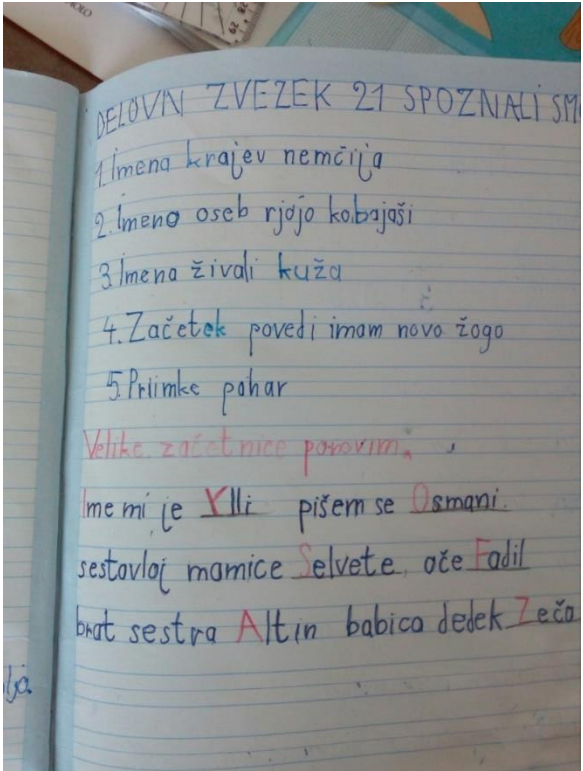 DELOVN ZVEZEK 21 SPOZNALI SMO
1. Imena krajev nemčija
2. Imena oseb rjojo kobajaši
3. Imena živali kuža
4. Začetek povedi imam novo žogo
5. Priimke pahar
Velike začetnice ponovim.
Ime mi je Ylli pišem se Osmani.
sestavljaj mamice Selvete, oče Fadil
brat sestra Altin babica dedek Zeča